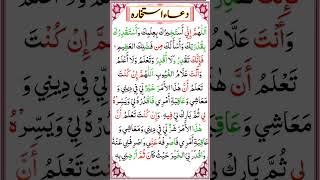 دعاء استخاره
اَللّٰهُمَّ إِنِّي أَسْتَخِيرُكَ بِعِلْمِكَ وَأَسْتَقْدِرُكَ
بِقُدْرَتِكَ وَأَسْأَلُكَ مِنْ فَضْلِكَ الْعَظِيمِ
فَإِنَّكَ تَقْدِرُ وَلَا أَقْدِرُ وَتَعْلَمُ وَلَا أَعْلَمُ
وَأَنْتَ عَلَّامُ الْغُيُوبِ اللّٰهُمَّ إِنْ كُنْتَ
تَعْلَمُ أَنَّ هٰذَا الْأَمْرَ خَيْرٌ لِّي فِي دِينِي وَ
مَعَاشِي وَعَاقِبَةِ أَمْرِي فَاقْدُرْهُ لِي وَيَسِّرْهُ
لِي ثُمَّ بَارِكْ لِي فِيهِ وَإِنْ كُنْتَ تَعْلَمُ أَنَّ
هٰذَا الْأَمْرَ شَرٌّ لِّي فِي دِينِي وَمَعَاشِي
وَعَاقِبَةِ أَمْرِي فَاصْرِفْهُ عَنِّي وَاصْرِفْنِي عَنْهُ
وَاقْدُرْ لِي الْخَيْرَ حَيْثُ كَانَ ثُمَّ أَرْضِنِي بِهِ